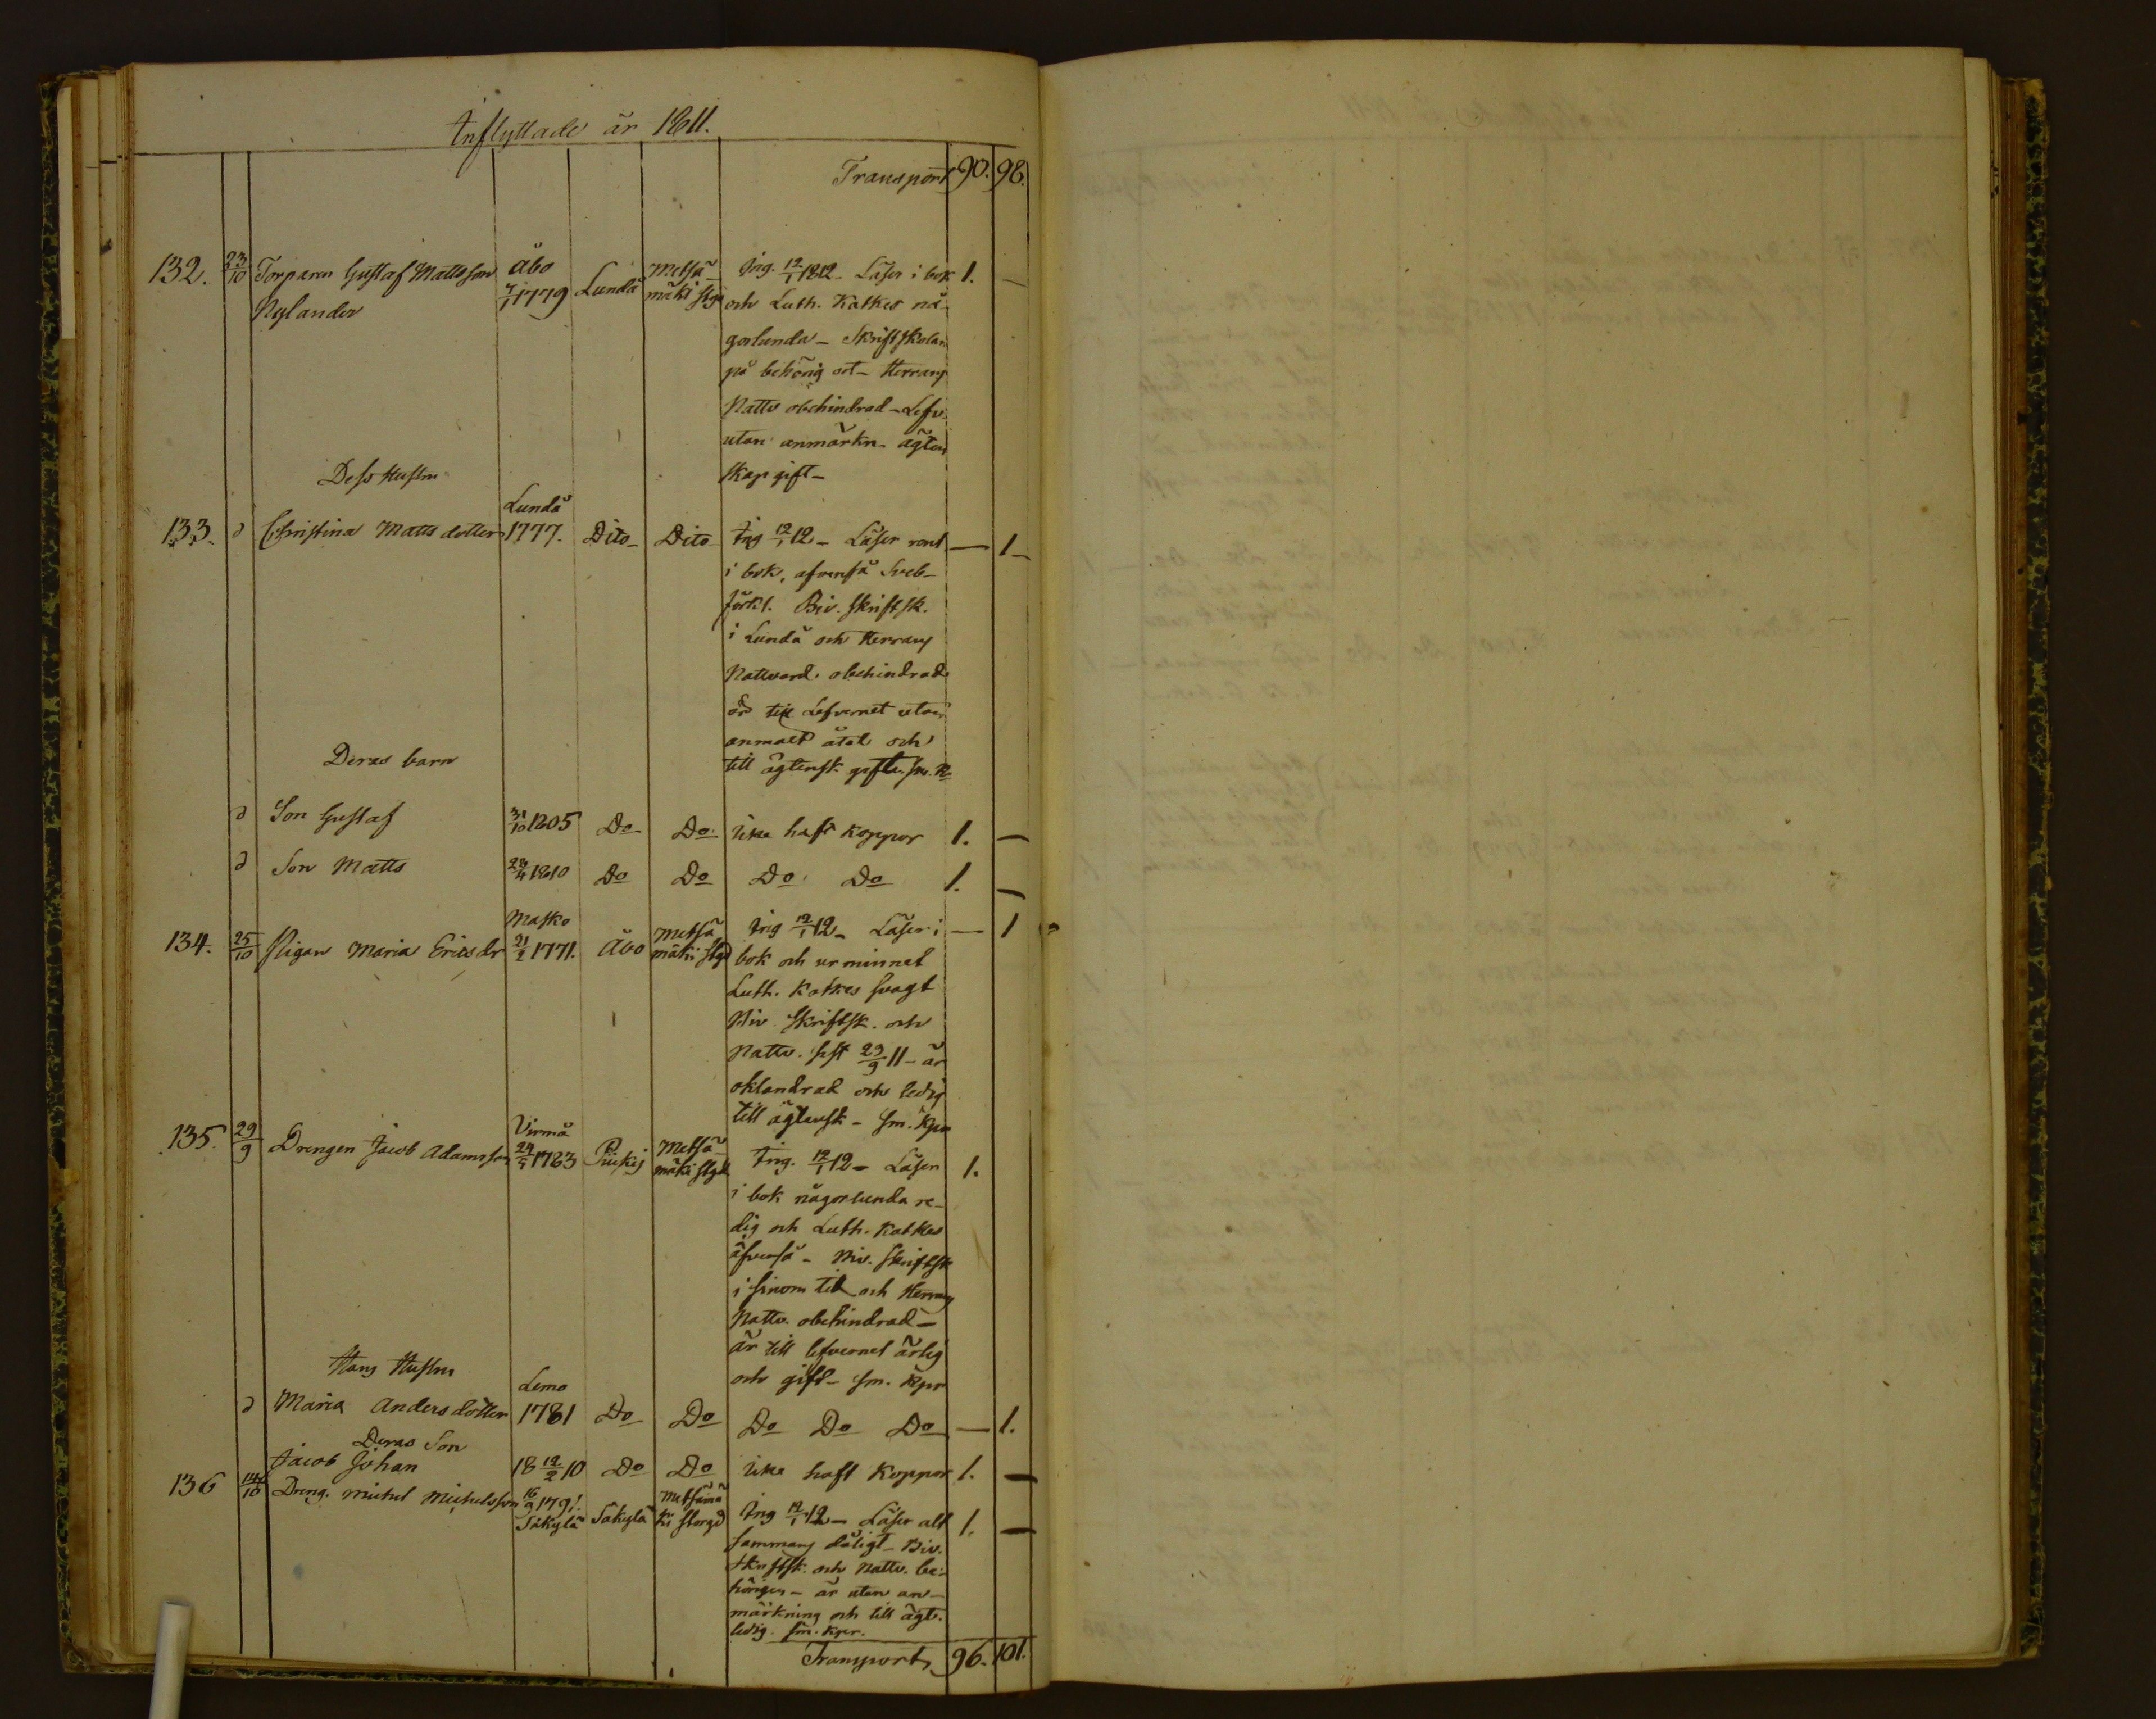 Inflyttade år 1811.
Transport 90. 98.
132. 23/10 Torparen Gustaf Mattsson Nylander Åbo 7/1 1779 Lundå Metsämäki stgd Ing. 12/1 1812 - Läser i bok 1. -
och Luth. Katkes nå-
gorlunda - Skriftskolan
på behörig ort - Herrans
Nattv obehindrad - Lefv.
utan anmärkn - ägten
skap gift -
Dess Hustru
133. d Christina Matts dotter Lundå 1777. Dito - Dito Ing 12/1 12 - Läser rent - 1 -
i bok, äfvenså Sveb-
förkl. Biv. skriftsk.
i Lundå och Herrans
Nattvard. obehindrad.
är till Lefvernet utan
anmält åtal och
till ägtensk. gift. sm. K
Deras barn
d Son Gustaf 31/10 1805 Do Do icke haft koppor 1. -
d Son Matts 24/4 1810 Do Do Do Do 1. -
134. 25/10 Pigan Maria Ericsdr Masko 21/2 1771. Åbo Metsämäki stgd Ing 12/1 12 - Läser i - 1
bok och ur minnet
Luth. Katkes svagt
Biv. Skriftsk. och
Nattv. sist 29/9 11 - är
oklandrad och ledig
till ägtensk - sm. kpr
135. 29/9 Drengen Jacob Adamsson Virmå 24/5 1783 Piikis Metsämäki stgd Ing. 12/1 12 - Läser 1.
i bok någorlunda re-
dig och Luth. Katkes
äfvenså - Biv. Skriftsk
i sinom tid och Herrans
Nattv. obehindrad -
är till lefvernet ärlig
och gift - sm. kpr
Hans Hustru
d Maria Anders dotter Lemo 1781 Do Do Do Do Do - 1.
Deras Son
Jacob Johan 18 12/2 10 Do Do icke haft Koppor 1. -
136 14/10 Dreng. Michel Michelsson 16/9 1791. Säkylä Säkylä Metsämäki storgd Ing 12/1 12 - Läser alt 1. -
sammans dåligt - Biv.
Skriftsk. och Nattv. be-
hörigen - är utan an-
märkning och till ägt.
ledig. sm. kpr.
Transport 96. 101.